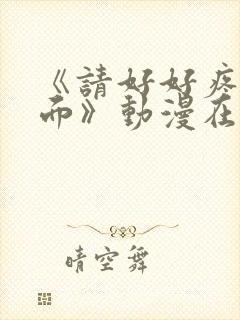 《請好好疼
而》動漫在
晴空舞